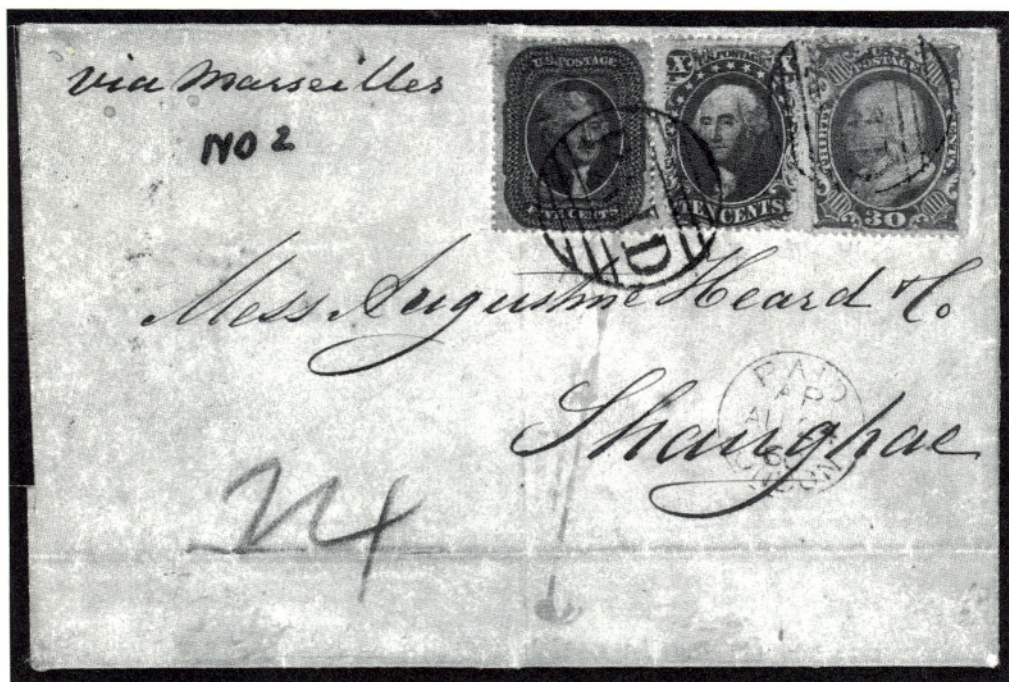 via Marseilles
NO 2
U.S. POSTAGE
FIVE CENTS
X U.S. POSTAGE X
TEN CENTS
U.S. POSTAGE
THIRTY CENTS
30
D
Mess Augustine Heard & Co
Shanghae
PAID
AP
LONDON
24